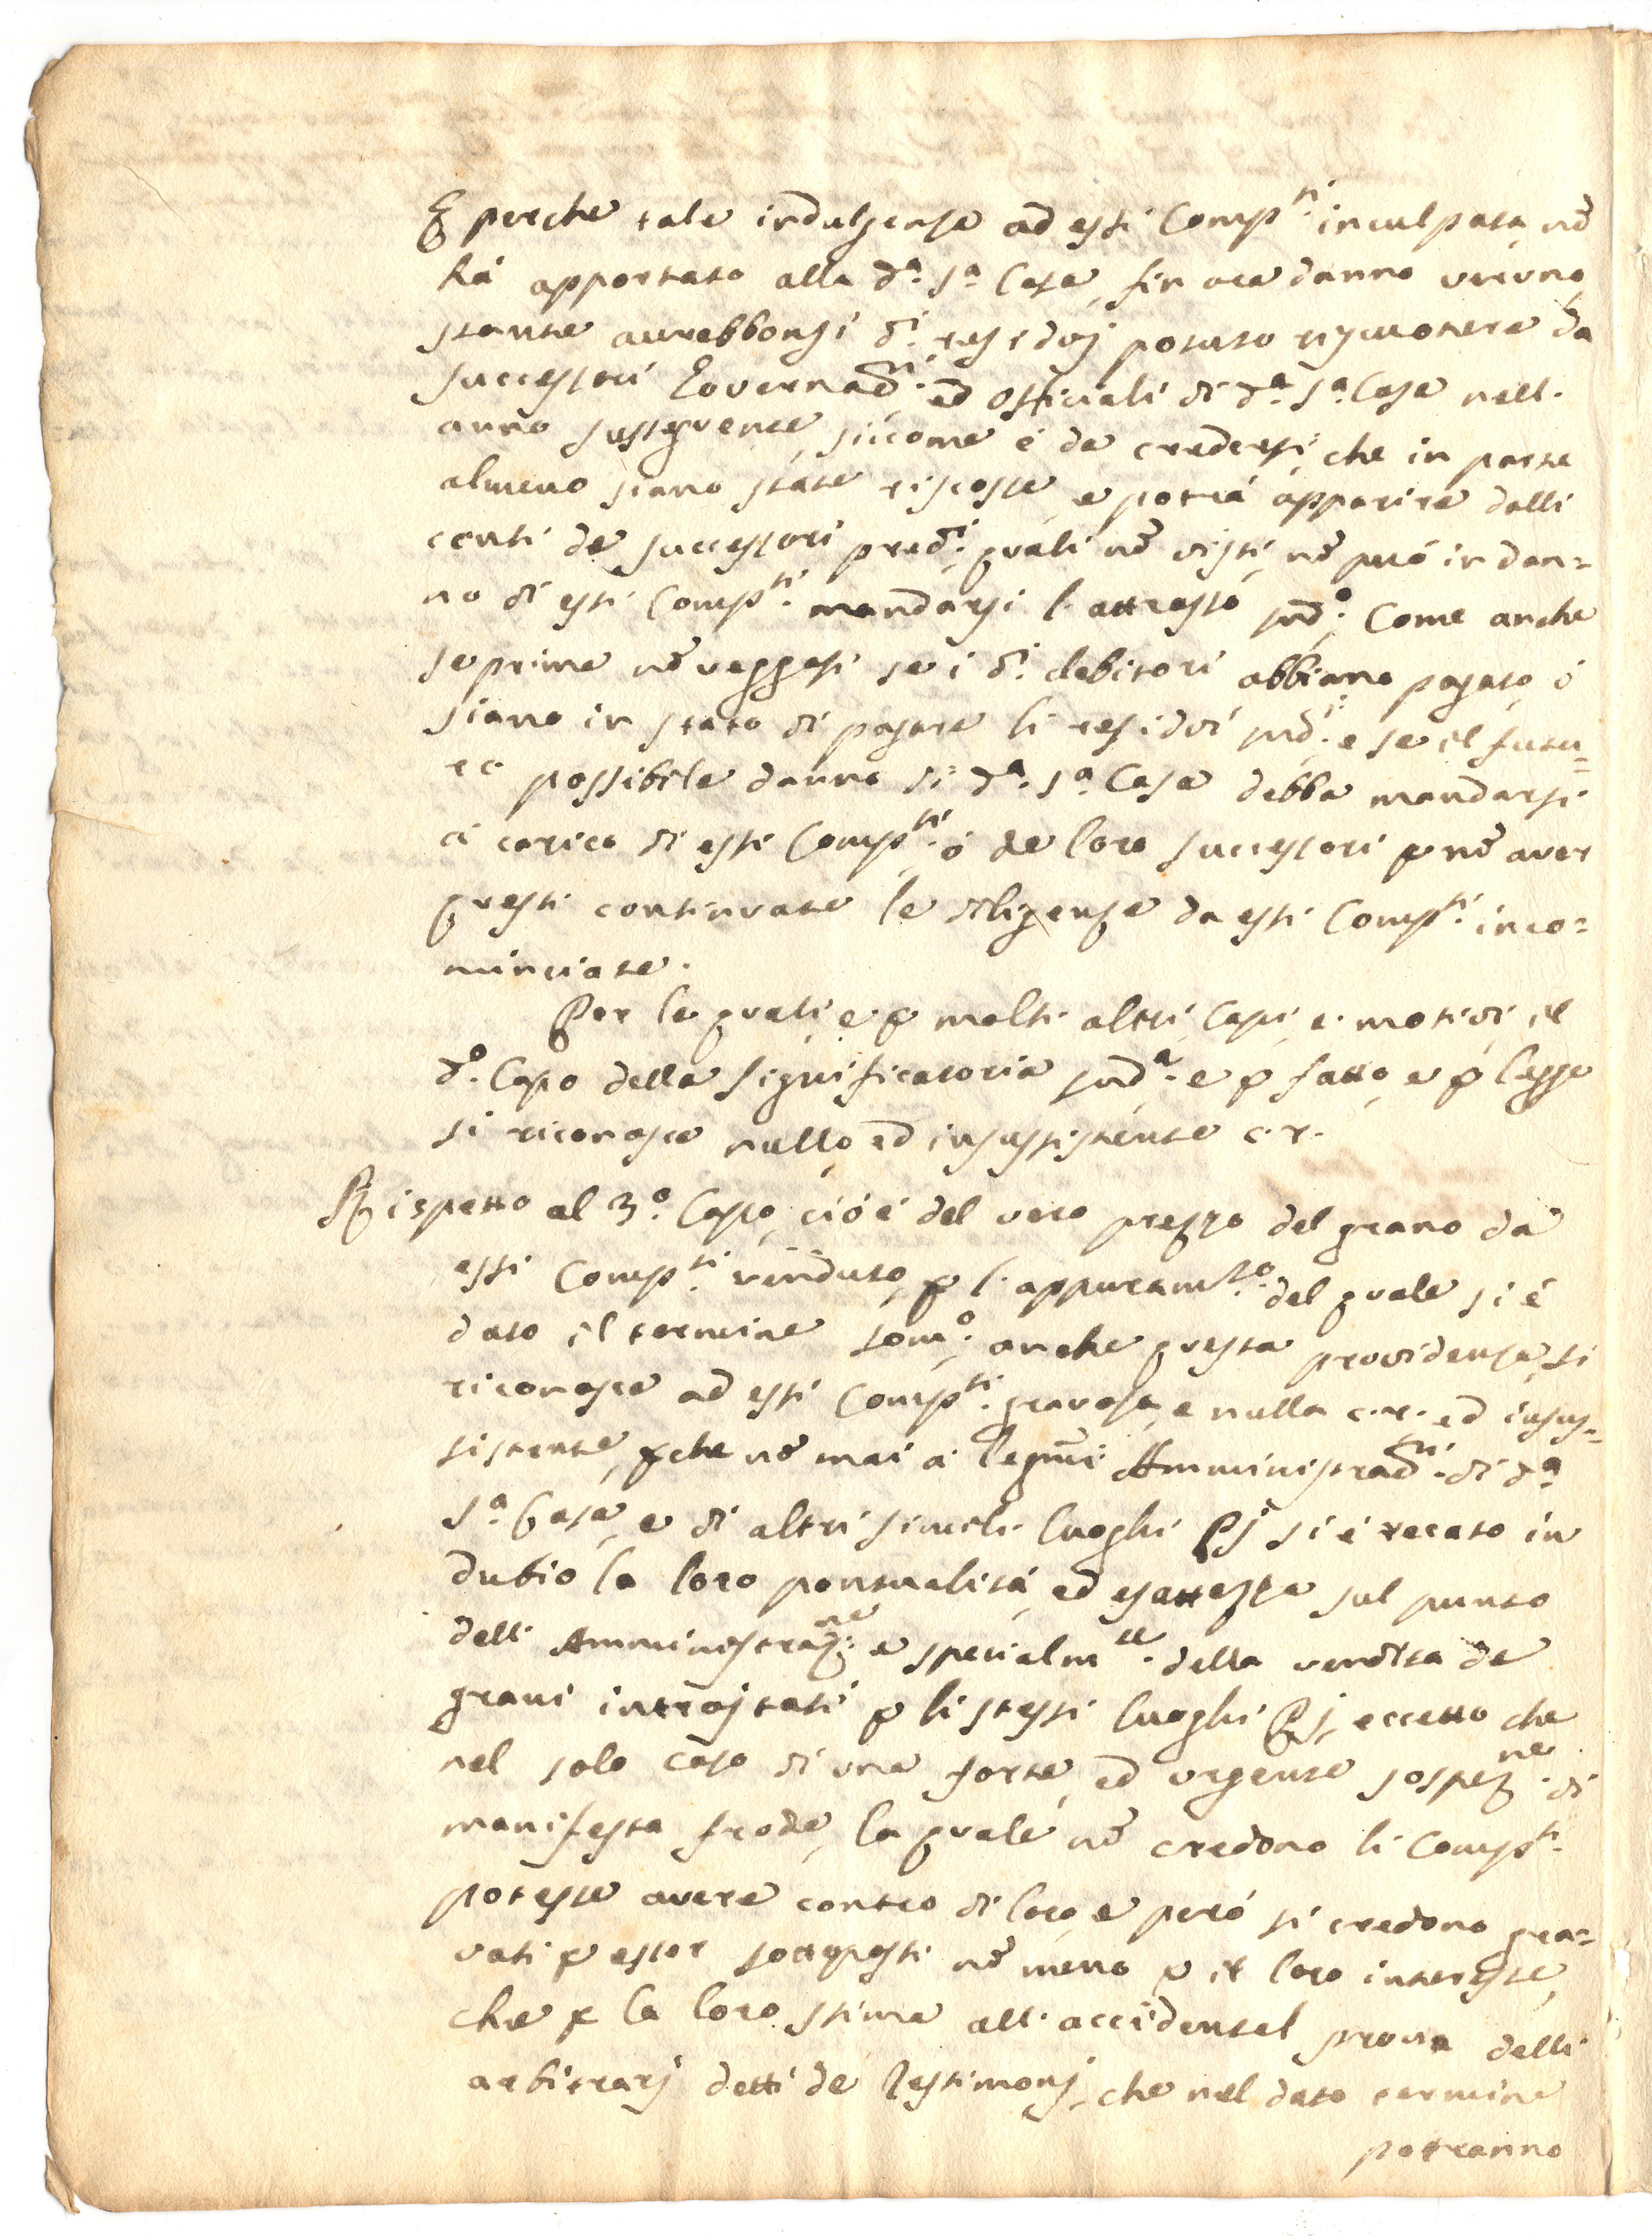 E perche tale indulgenza ad essi Comp.ti inculpata, nõ
hà apportato alla d.a S.a Casa, fin ora danno veruno,
stante aurebbonsi d.i residuj potuto riscuotere da
successori Governad.ri, ed Officiali di d.a S.a Casa nell'
anno susseguente, siccome è da credersi, che in parte
almeno siano state riscosse, e potrà apparire dalli
conti de successori pred.i, quali nõ visti, nõ può in dan=
no di essi Comp.ti mandarsi l'attrasso sud.o; Come anche
se prima nõ veggasi se i d.i debitori abbiano pagato, ò
siano in stato di pagare li residui sud.i: e se il futu=
ro possibile danno di d.a S.a Casa debba mandarsi
à carico di essi Comp.ti, ò de loro successori p nõ aver
questi continuate le diligenze da essi Comp.ti inco=
minciate.
Per le quali, e p molti altri Capi, e motivi, il
d.o Capo della Significatoria sud.a, e p fatto, e p legge
si riconosce nullo, ed insussistente c.r.
Rispetto al 3.o Capo, ciò è del vero prezzo del grano da
essi Comp.ti venduto, p l'appuram.to del quale si è
dato il termine som.o, anche questa providenza, si
riconosce ad essi Comp.ti gravosa, e nulla c.r. ed insus=
sistente, pche nõ mai a' legmi Amministrad.ri di d.a
S.a Casa, e di altri simili luoghi Pij si è recato in
dubio la loro pontualità, ed esattezza sul punto
dell' Amministraz.ne, e specialm.te della vendita de
grani introjtati p li stessi luoghi Pij, eccetto che
nel solo caso di una forte, ed urgente sospez.ne di
manifesta frode, la quale nõ credono li Comp.ti
potesse avere contro di loro, e però si credono gra=
vati p esser sottoposti nõ meno p il loro interesse,
che p la loro stima all'accidental prova delli
arbitrarj detti de Testimonj, che nel dato termine
potranno